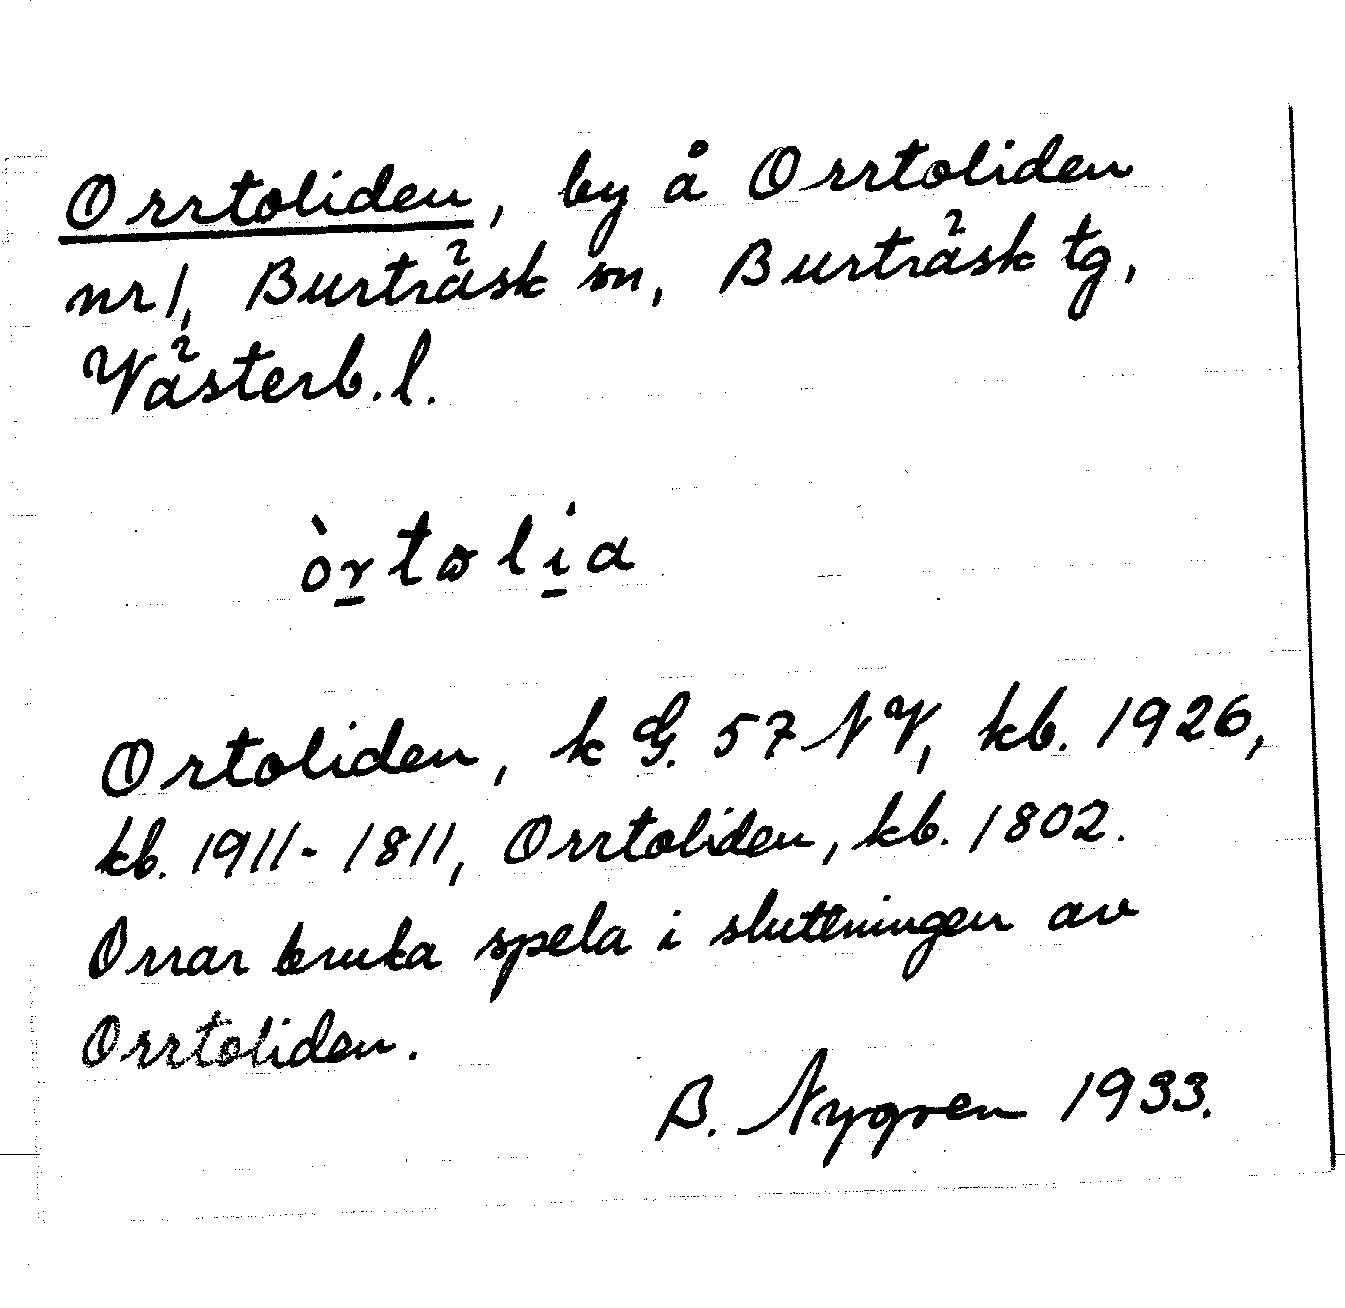 Orrtoliden, by å Orrtoliden
nr 1, Burträsk sn, Burträsk tg,
Västerb. l.
òr̲tωli̲a
Ortoliden, k G. 57 NV, kb. 1926,
kb. 1911-1811, Orrtoliden, kb. 1802.
Orrar bruka spela i sluttningen av
Orrtoliden.
B. Nygren 1933.